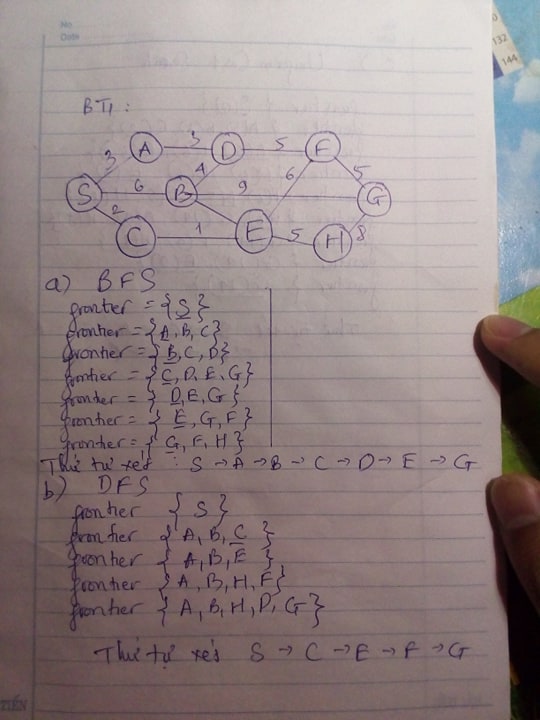 No.
Date
132
144
BT1:
A 3 D 5 F
3 4 6 5
S 6 B 9 G
2
C 1 E 5 H 8
a) BFS
frontier = {S}
frontier = {A, B, C}
frontier = {B, C, D}
frontier = {C, D, E, G}
frontier = {D, E, G}
frontier = {E, G, F}
frontier = {G, F, H}
Thứ tự xét : S → A → B → C → D → E → G
b) DFS
frontier {S}
frontier {A, B, C}
frontier {A, B, E}
frontier {A, B, H, F}
frontier {A, B, H, D, G}
Thứ tự xét S → C → E → F → G
TIẾN